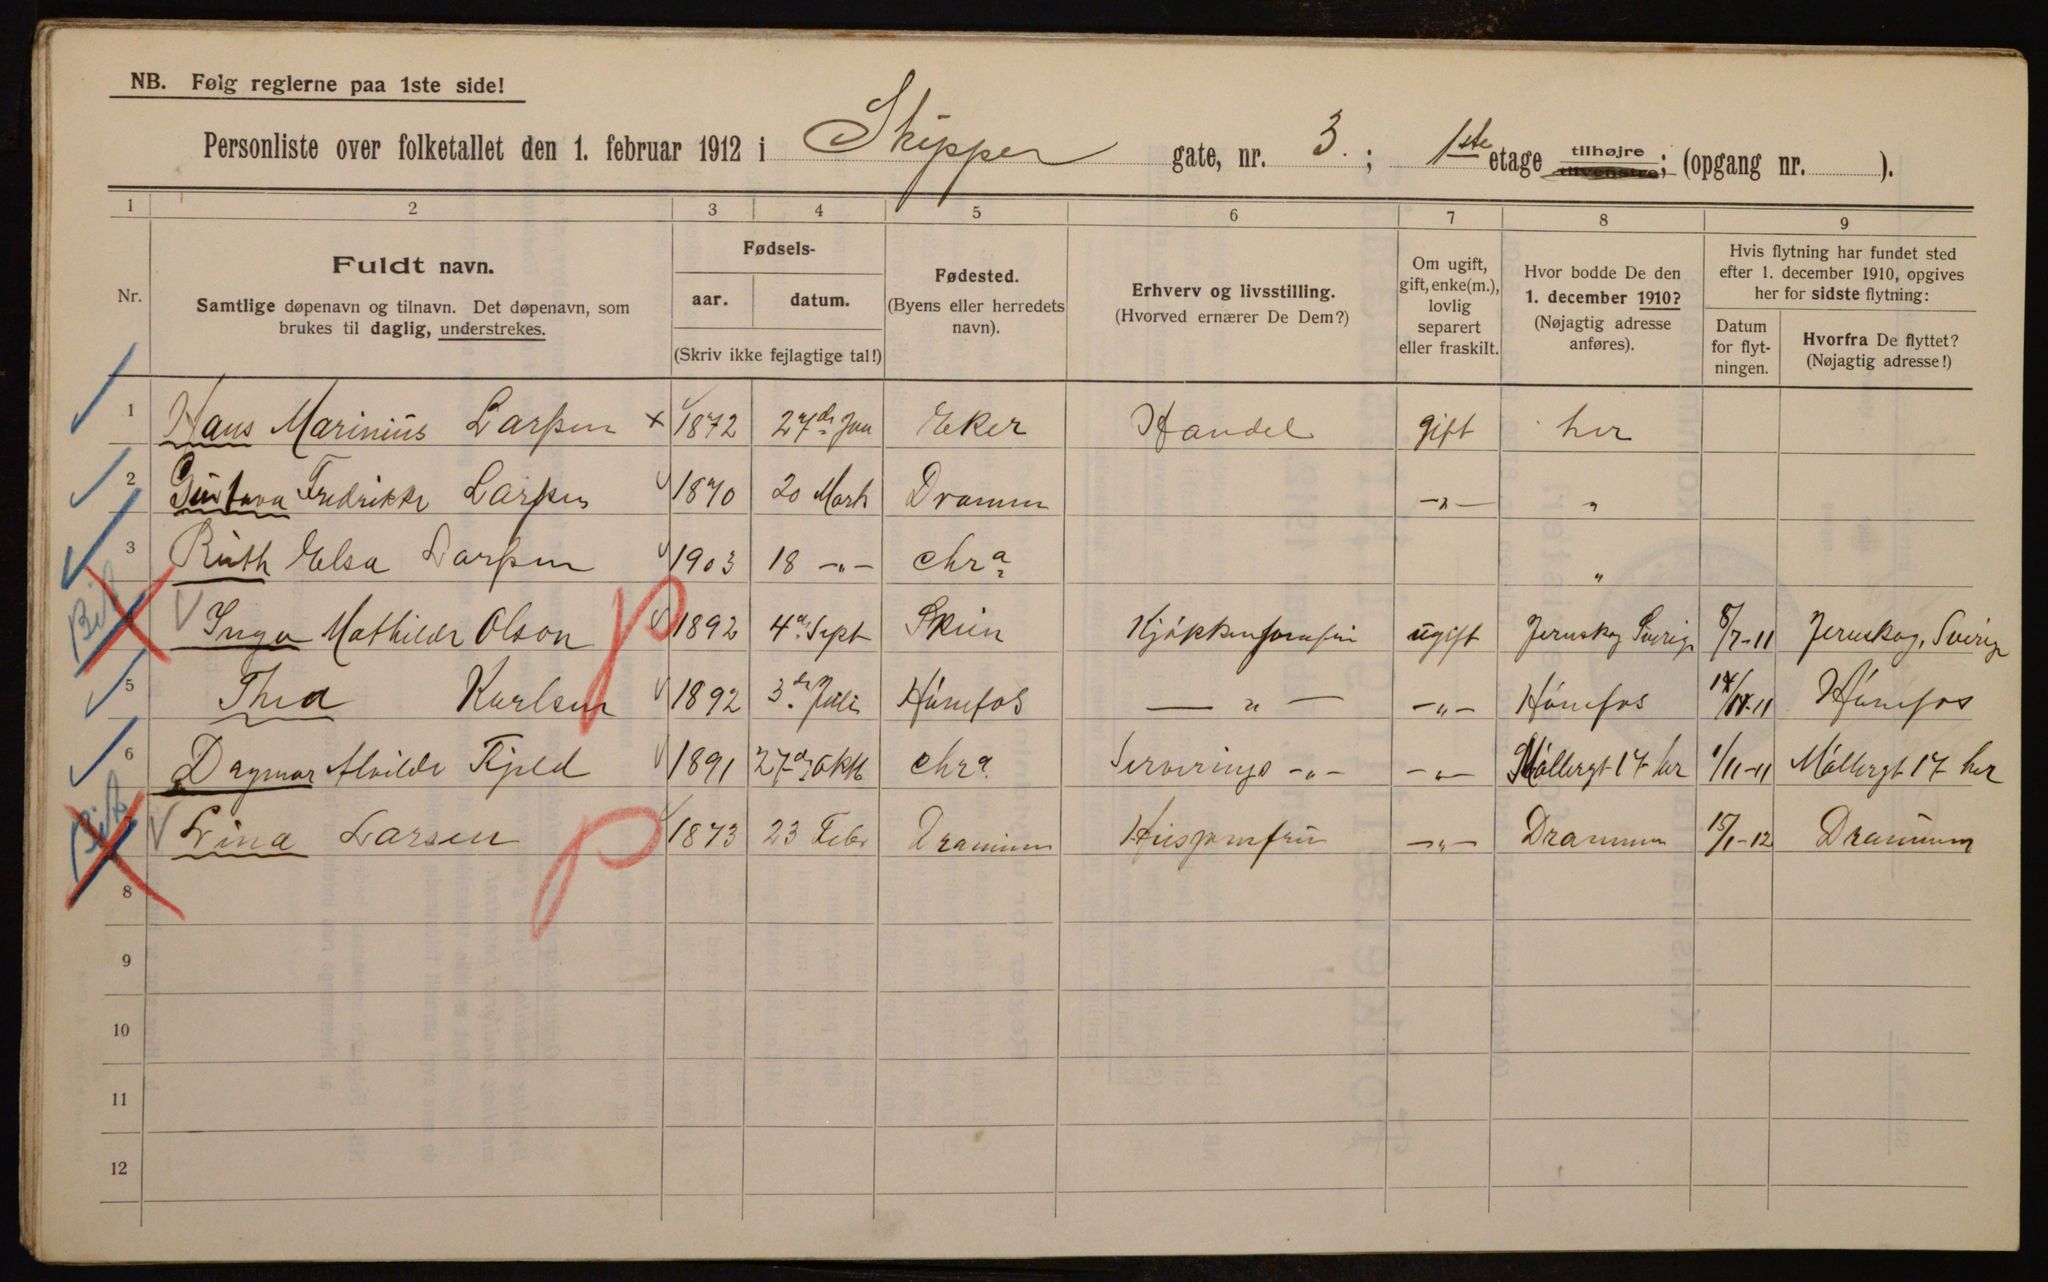 NB. Følg reglerne paa 1ste side!
Personliste over folketallet den 1. februar 1912 i Skipper gate, nr. 3. ; 1ste etage tilhøjre tilvenstre; (opgang nr. ).
1 2 3 4 5 6 7 8 9
Nr.
Fuldt navn.
Samtlige døpenavn og tilnavn. Det døpenavn, som
brukes til daglig, understrekes.
Fødsels-
aar. datum.
(Skriv ikke fejlagtige tal!)
Fødested.
(Byens eller herredets
navn).
Erhverv og livsstilling.
(Hvorved ernærer De Dem?)
Om ugift,
gift, enke(m.),
lovlig
separert
eller fraskilt.
Hvor bodde De den
1. december 1910?
(Nøjagtig adresse
anføres).
Hvis flytning har fundet sted
efter 1. december 1910, opgives
her for sidste flytning:
Datum
for flyt-
ningen.
Hvorfra De flyttet?
(Nøjagtig adresse!)
1 Hans Marinius Larsen x 1872 27de Jan Eker Handel gift her
2 Gustava Fredrikke Larsen 1870 20 Marts Drammen -"- "
3 Ruth Elsa Larsen 1903 18 -"- Chra "
Bit Inga Mathilde Olson 1892 4de Sept Skien Kjøkkenjomfru ugift Jernskog Sverig 8/7-11 Jernskog, Sverig
5 Thea Karlsen 1892 3de Juli Hønefos -"- -"- Hønefos Hønefos
6 Dagmar Alvilde Fjeld 1891 27de Okt Chra Serverings -"- -"- Møllergt 17 her 1/11-11 Møllergt 17 her
Bit Lina Larsen 1873 23 Febr Drammen Husjomfru -"- Drammen 15/1-12 Drammen
8
9
10
11
12